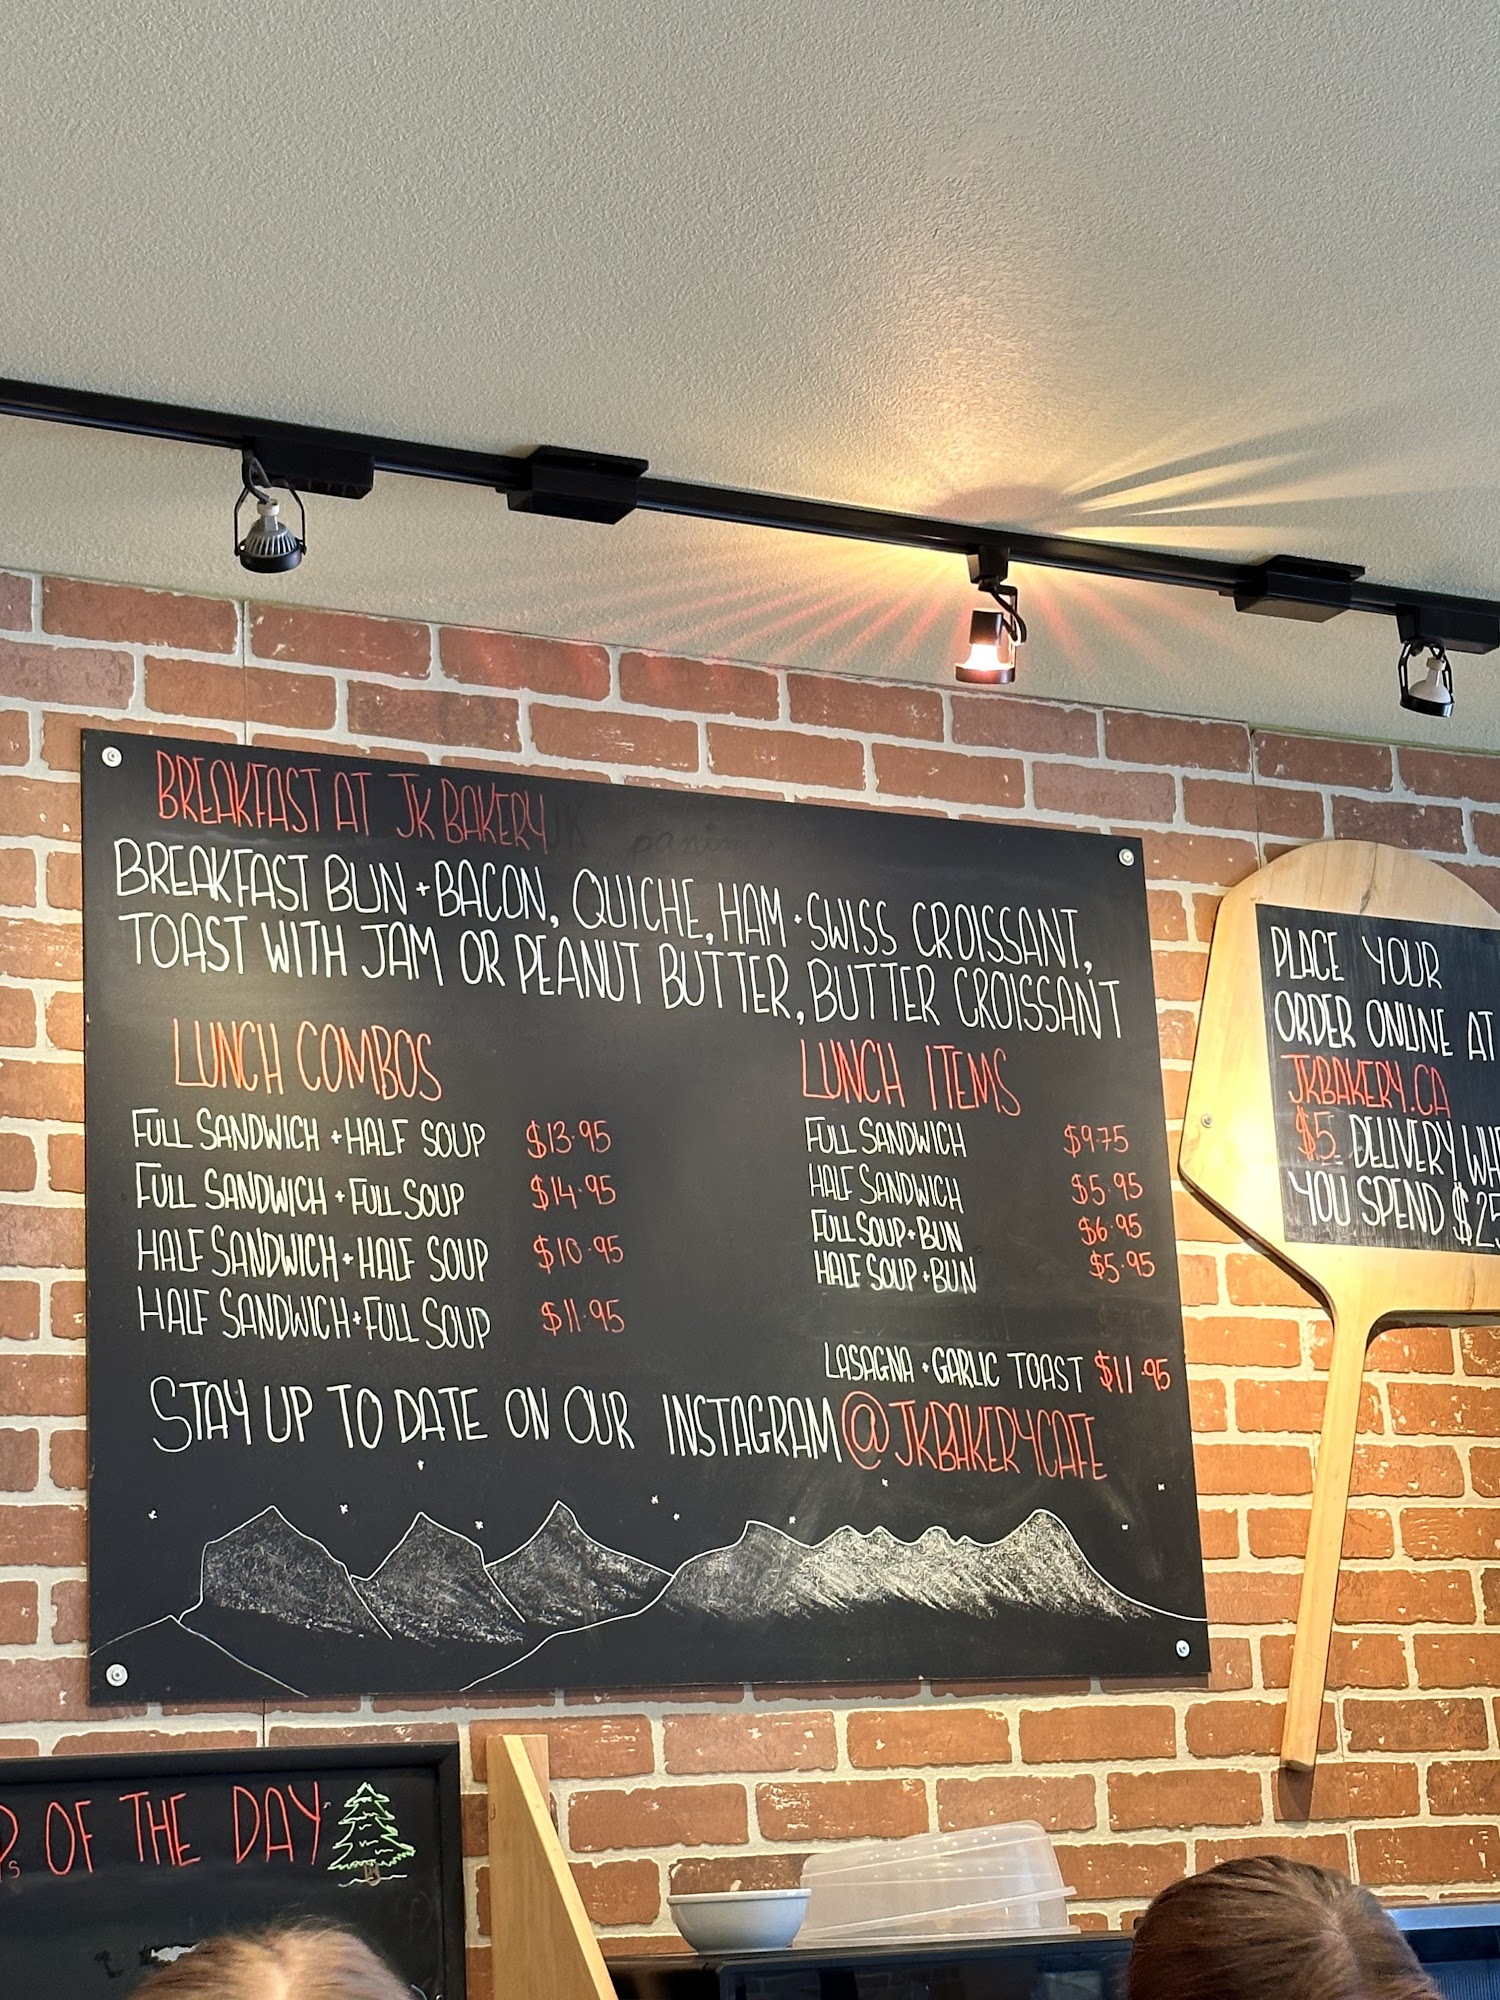 BREAKFAST AT JK BAKERY
BREAKFAST BUN + BACON, QUICHE, HAM + SWISS CROISSANT,
TOAST WITH JAM OR PEANUT BUTTER, BUTTER CROISSANT
LUNCH COMBOS
FULL SANDWICH + HALF SOUP $13.95
FULL SANDWICH + FULL SOUP $14.95
HALF SANDWICH + HALF SOUP $10.95
HALF SANDWICH + FULL SOUP $11.95
LUNCH ITEMS
FULL SANDWICH $9.75
HALF SANDWICH $5.95
FULL SOUP + BUN $6.95
HALF SOUP + BUN $5.95
LASAGNA + GARLIC TOAST $11.95
STAY UP TO DATE ON OUR INSTAGRAM @JKBAKERYCAFE
PLACE YOUR
ORDER ONLINE AT
JKBAKERY.CA
$5 DELIVERY
YOU SPEND $25
OF THE DAY